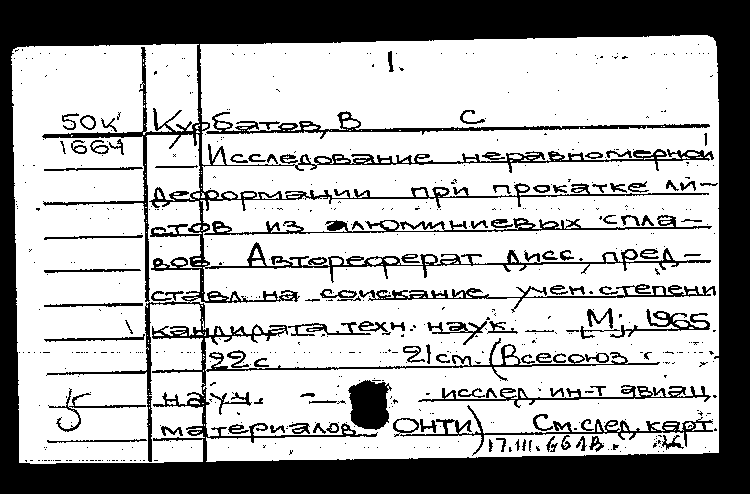 1.
50к Курбатов, В С
1664 Исследование неравномерной
деформации при прокатке ли-
стов из алюминиевых спла-
вов. Автореферат дисс., пред-
ставл. на соискание учен. степени
кандидата техн. наук. [М], 1965.
22 с. 21 см. (Всесоюз.
науч. - исслед. ин-т авиац.
материалов ОНТИ) См. след. карт.
17.III.66